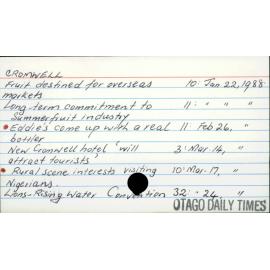 CROMWELL
Fruit destined for overseas markets 10: Jan 22, 1988
Long-term commitment to Summerfruit industry 11: " " "
Eddie's come up with a real bottler 11: Feb 26, "
New Cromwell hotel 'will attract tourists' 3: Mar. 14, "
Rural scene interests visiting Nigerians. 10: Mar. 17, "
Lions- Rising Water Convention 32: " 24, "
OTAGO DAILY TIMES